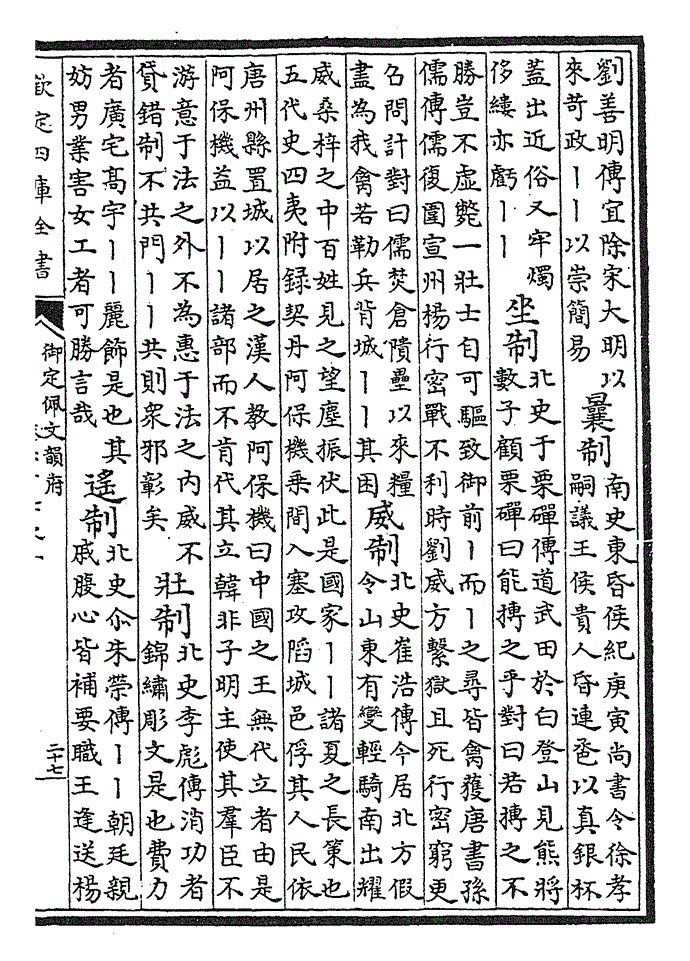 劉善明傳宜除宋大明以
來苛政丨丨以崇簡易
曩制
南史東昏侯紀庚寅尚書令徐孝
嗣議王侯貴人昏連卺以真銀杯
蓋出近俗又牢燭
侈縷亦虧丨丨
坐制
北史于栗磾傳道武田於白登山見熊將
數子顧栗磾曰能搏之乎對曰若搏之不
勝豈不虛斃一壯士自可驅致御前丨而丨之尋皆禽獲唐書孫
儒傳儒復圍宣州楊行密戰不利時劉威方繫獄且死行密窮更
召問計對曰儒焚倉隤壘以來糧
盡為我禽若勒兵背城丨丨其困
威制
北史崔浩傳今居北方假
令山東有變輕騎南出耀
威桑梓之中百姓見之望塵振伏此是國家丨丨諸夏之長策也
五代史四夷附録契丹阿保機乗間入塞攻陷城邑俘其人民依
唐州縣置城以居之漢人教阿保機曰中國之王無代立者由是
阿保機益以丨丨諸部而不肯代其立韓非子明主使其羣臣不
游意于法之外不為惠于法之内威不
貸錯制不共門丨丨共則衆邪彰矣
壯制
北史李彪傳消功者
錦繡彫文是也費力
者廣宅髙宇丨丨麗飾是也其
妨男業害女工者可勝言哉
遙制
北史尒朱榮傳丨丨朝廷親
戚腹心皆補要職王逢送楊
欽定四庫全書
御定佩文韻府
二十七